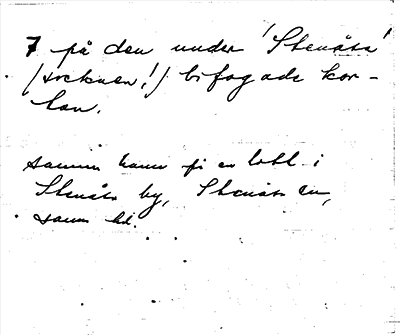 7 på den under 'Stenåsa'
(socknen!) bifogade kar-
tan.
samma namn på en lokal i
Stenåsa by, Stenåsa sn,
samma hd.